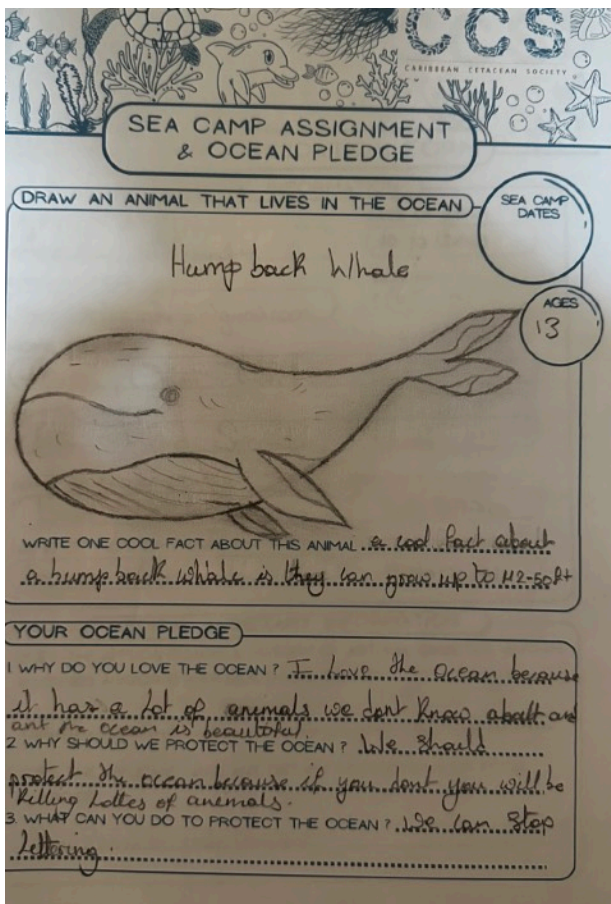 CCS
CARIBBEAN CETACEAN SOCIETY
SEA CAMP ASSIGNMENT
& OCEAN PLEDGE
DRAW AN ANIMAL THAT LIVES IN THE OCEAN
SEA CAMP
DATES
Humpback Whale
AGES
13
WRITE ONE COOL FACT ABOUT THIS ANIMAL a cool fact about
a humpback whale is they can grow up to 42-50ft
YOUR OCEAN PLEDGE
1 WHY DO YOU LOVE THE OCEAN? I love the ocean because
it has a lot of animals we dont know about and
ant the ocean is beautoful.
2 WHY SHOULD WE PROTECT THE OCEAN? We should
protect the ocean because if you dont you will be
killing Lottes of anemals.
3. WHAT CAN YOU DO TO PROTECT THE OCEAN? We can stop
Lettering.